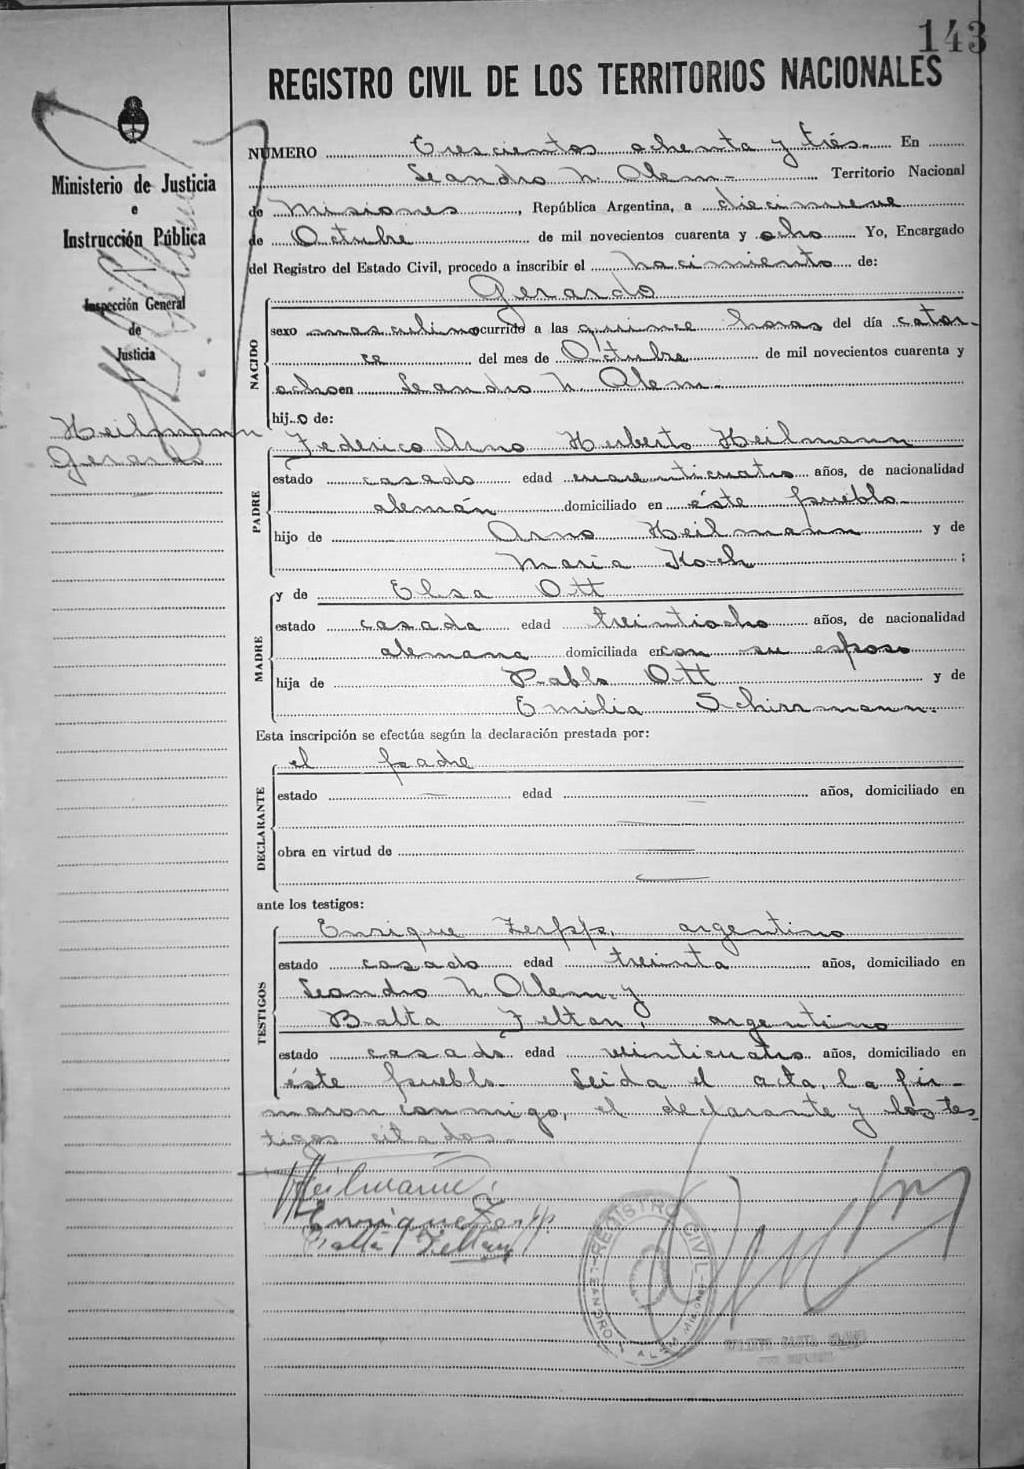 143
REGISTRO CIVIL DE LOS TERRITORIOS NACIONALES
Ministerio de Justicia
e
Instrucción Pública
Inspección General
de
Justicia
Heilmann
Gerardo
NÚMERO Trescientos ochenta y trés. En
Leandro N. Alem- Territorio Nacional
de Misiones, República Argentina, a diecinueve
de Octubre de mil novecientos cuarenta y ocho Yo, Encargado
del Registro del Estado Civil, procedo a inscribir el nacimiento de:
NACIDO
Gerardo
sexo masculino ocurrido a las quince horas del día cator-
ce del mes de Octubre de mil novecientos cuarenta y
ocho en Leandro N. Alem-
hijo de:
PADRE
Federico Arno Herberto Heilmann
estado casado edad cuarenticuatro años, de nacionalidad
alemán domiciliado en éste pueblo-
hijo de Arno Heilmann y de
Maria Koch ;
MADRE
y de Elsa Ott
estado casada edad treintiocho años, de nacionalidad
alemana domiciliada en con su esposo
hija de Pablo Ott y de
Emilia Schirrmann.
Esta inscripción se efectúa según la declaración prestada por:
DECLARANTE
el padre
estado edad años, domiciliado en
obra en virtud de
ante los testigos:
TESTIGOS
Enrique Zerpp, argentino
estado casado edad treinta años, domiciliado en
Leandro N. Alem. y
Balta Feltan, argentino
estado casado edad veinticuatro años, domiciliado en
éste pueblo- Leida el acta, la fir-
maron conmigo, el declarante y los tes-
tigos citados-
Heilmann
Enrique Zerpp
Balta Feltan
REGISTRO CIVIL
LEANDRO N. ALEM